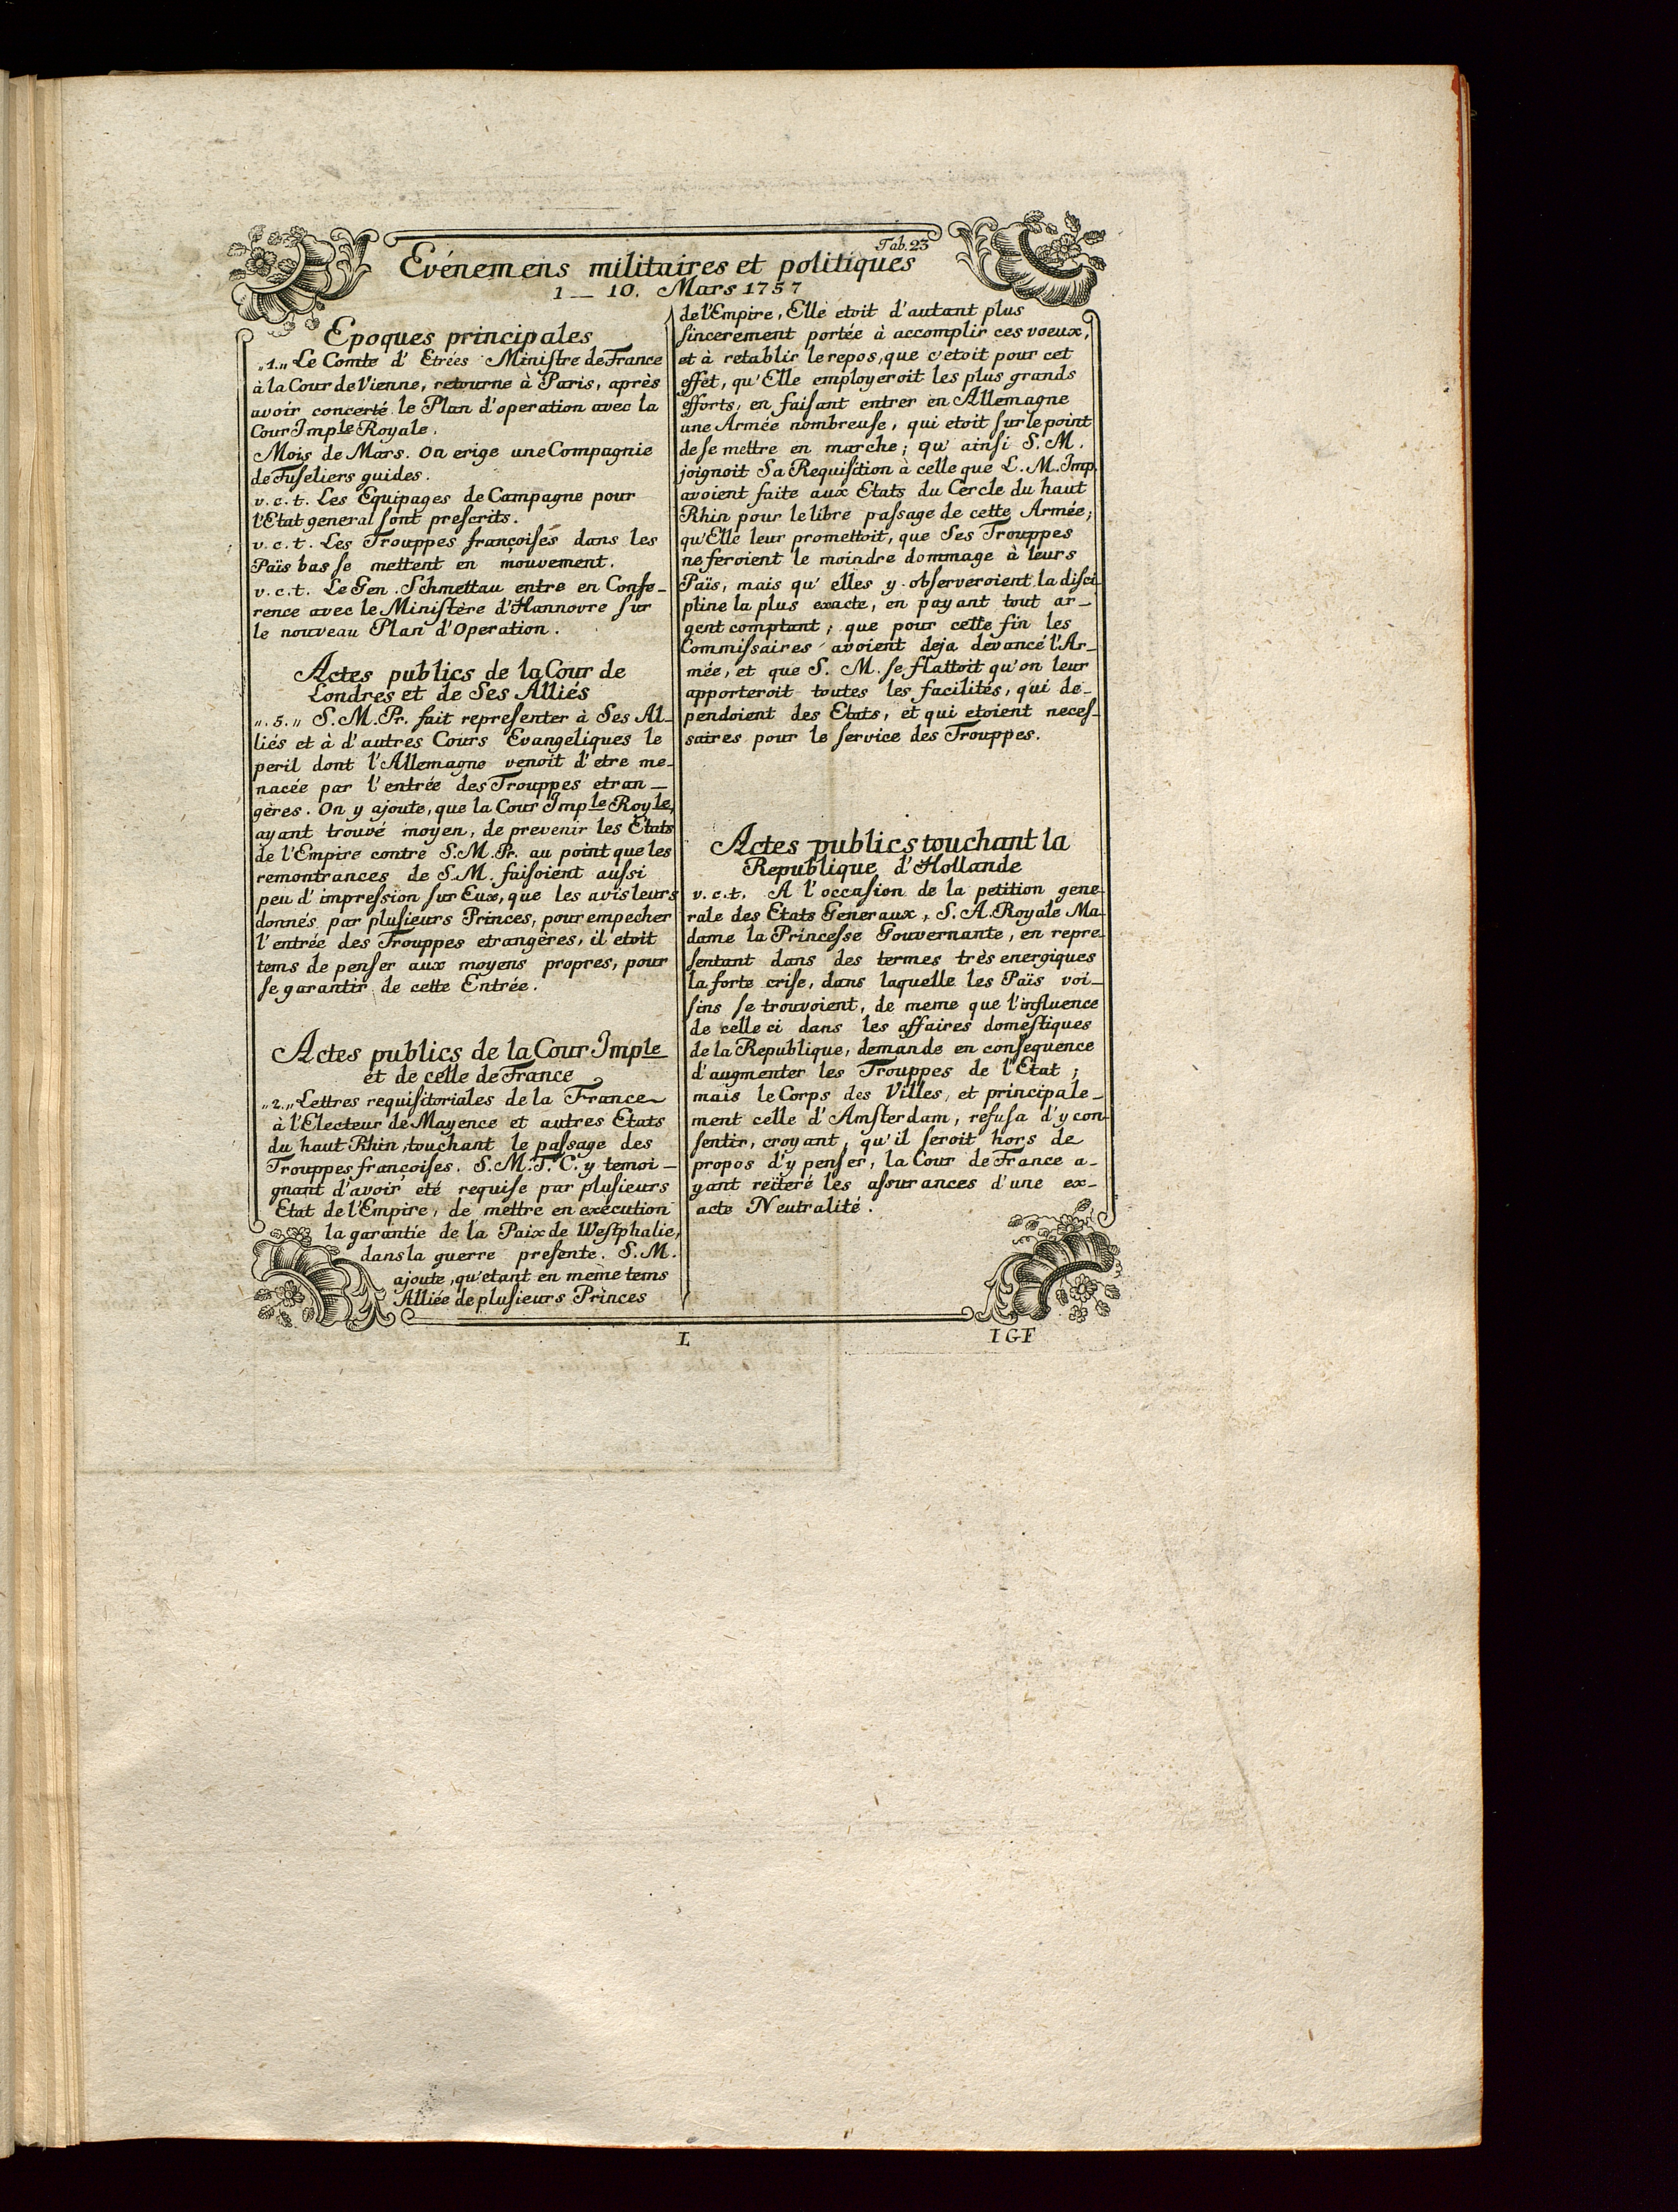 Tab. 23
Evénemens militaires et politiques
1 — 10. Mars 1757
Epoques principales
„1.„ Le Comte d' Etrées Miniſtre de France
à la Cour de Vienne, retourne à Paris, après
avoir concerté le Plan d'operation avec la
Cour Imple Royale.
Mois de Mars. On erige une Compagnie
de Fuſeliers guides.
v. c. t. Les Equipages de Campagne pour
l'Etat general ſont preſcrits.
v. c. t. Les Trouppes françoiſes dans les
Païs bas ſe mettent en mouvement.
v. c. t. Le Gen. Schmettau entre en Confe-
rence avec le Miniſtère d'Hannovre ſur
le nouveau Plan d'Operation.
Actes publics de la Cour de
Londres et de Ses Alliés
„. 5. „ S. M. Pr. fait repreſenter à Ses Al-
liés et à d'autres Cours Evangeliques le
peril dont l'Allemagne venoit d'etre me-
nacée par l'entrée des Trouppes etran-
gères. On y ajoute, que la Cour Imple Royle,
ayant trouvé moyen, de prevenir les Etats
de l'Empire contre S. M. Pr. au point que les
remontrances de S. M. faiſoient auſsi
peu d'impreſsion ſur Eux, que les avis leurs
donnés par pluſieurs Princes, pour empecher
l'entrée des Trouppes etrangères, il etoit
tems de penſer aux moyens propres, pour
ſe garantir de cette Entrée.
Actes publics de la Cour Imple
et de celle de France
„2.„ Lettres requiſitoriales de la France
à l'Electeur de Mayence et autres Etats
du haut Rhin, touchant le paſsage des
Trouppes françoiſes. S. M. T. C. y temoi-
gnant d'avoir eté requiſe par pluſieurs
Etat de l'Empire, de mettre en execution
la garantie de la Paix de Weſtphalie,
dans la guerre preſente. S. M.
ajoute, qu'etant en meme tems
Alliée de pluſieurs Princes
de l'Empire, Elle etoit d'autant plus
ſincerement portée à accomplir ces voeux,
et à retablir le repos, que c'etoit pour cet
effét, qu'Elle employeroit les plus grands
efforts, en faiſant entrer en Allemagne
une Armée nombreuſe, qui etoit ſur le point
de ſe mettre en marche; qu' ainſi S. M.
joignoit Sa Requiſition à celle que L. M. Imp.
avoient faite aux Etats du Cercle du haut
Rhin pour le libre paſsage de cette Armée;
qu'Elle leur promettoit, que Ses Trouppes
ne feroient le moindre dommage à leurs
Païs, mais qu' elles y obſerveroient la diſci-
pline la plus exacte, en payant tout ar-
gent comptant; que pour cette fin les
Commiſsaires avoient deja dévancé l'Ar-
mée, et que S. M. ſe flattoit qu'on leur
apporteroit toutes les facilités, qui de-
pendoient des Etats, et qui etoient neceſ-
saires pour le ſervice des Trouppes.
Actes publics touchant la
Republique d'Hollande
v. c. t. A l'occaſion de la petition gene-
rale des Etats Generaux, S. A. Royale Ma-
dame la Princeſse Gouvernante, en repre-
ſentant dans des termes très energiques
la forte criſe, dans laquelle les Païs voi-
ſins ſe trouvoient, de meme que l'influence
de celle ci dans les affaires domeſtiques
de la Republique, demande en conſequence
d'augmenter les Trouppes de l'Etat;
mais le Corps des Villes, et principale-
ment celle d'Amſterdam, refuſa d'y con-
ſentir, croyant, qu'il ſeroit hors de
propos d'y penſer, la Cour de France a-
yant reïteré les aſsurances d'une ex-
acte Neutralité.
L
I G F